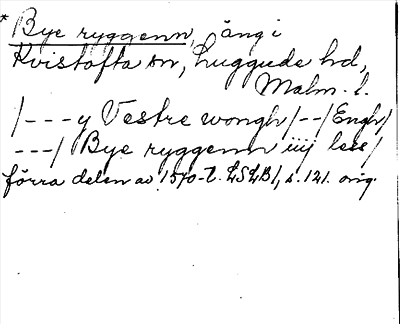 * Bye ryggenn, äng i
Kvistofta sn, Luggude hd,
Malm. l.
/---y Vestre wongh/--/Engh/
---/ Bye ryggenn iiij less/
förra delen av 1570-t. LSLB1, s. 121. orig.